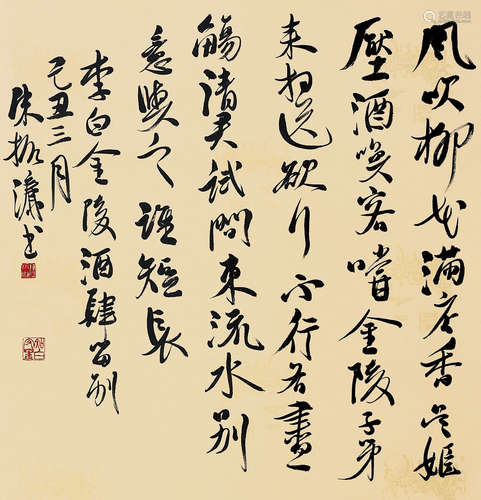 風吹柳花滿店香吳姬
壓酒喚客嚐金陵子弟
来相送欲行不行各盡
觴請君試問東流水別
意與之誰短長
李白金陵酒肆留別
己丑三月
朱振书